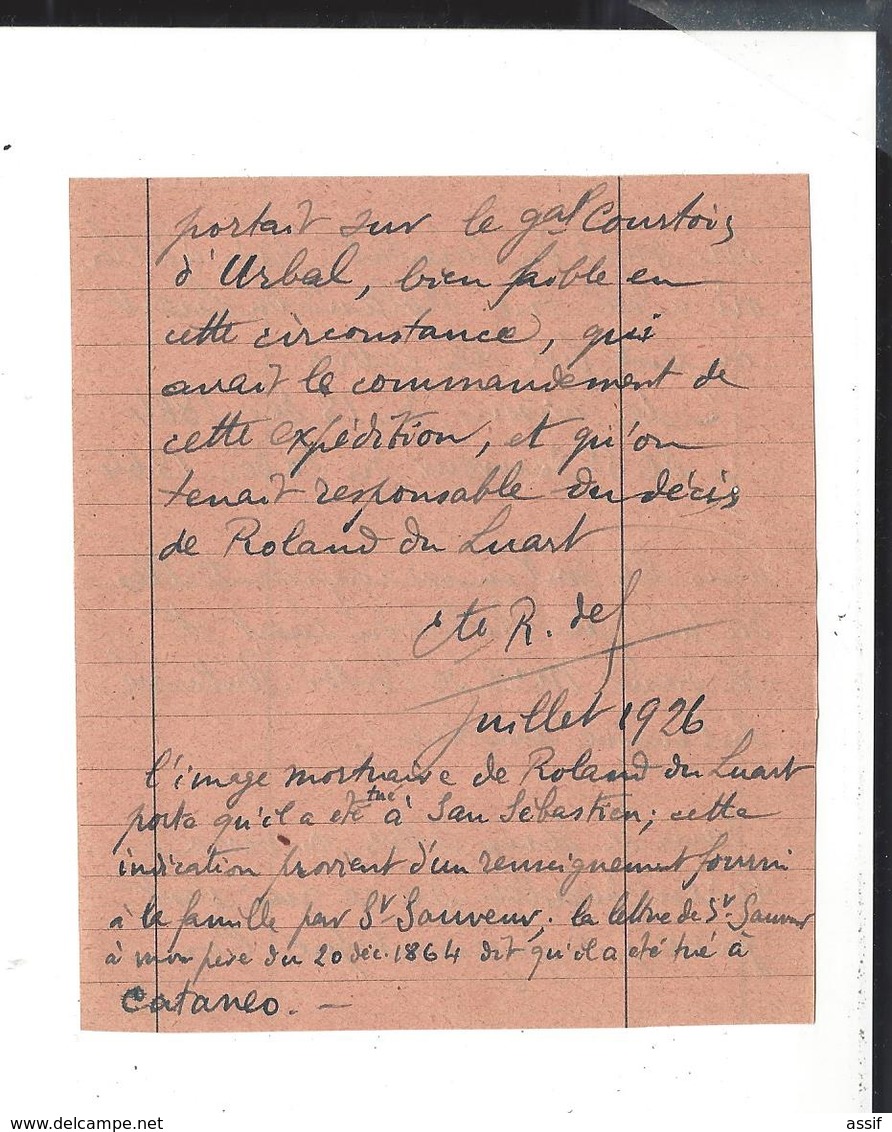 portait sur le gal Courtois
d'Urbal, bien faible en
cette circonstance, qui
avait le commandement de
cette expédition, et qu'on
tenait responsable du décès
de Roland du Luart
Cte R. de
Juillet 1926
l'image mortuaire de Roland du Luart
porte qu'il a été tué à San Sébastien; cette
indication provient d'un renseignement fourni
à la famille par St Sauveur; la lettre de St Sauveur
à mon père du 20 déc. 1864 dit qu'il a été tué à
Cataneo. —
assif